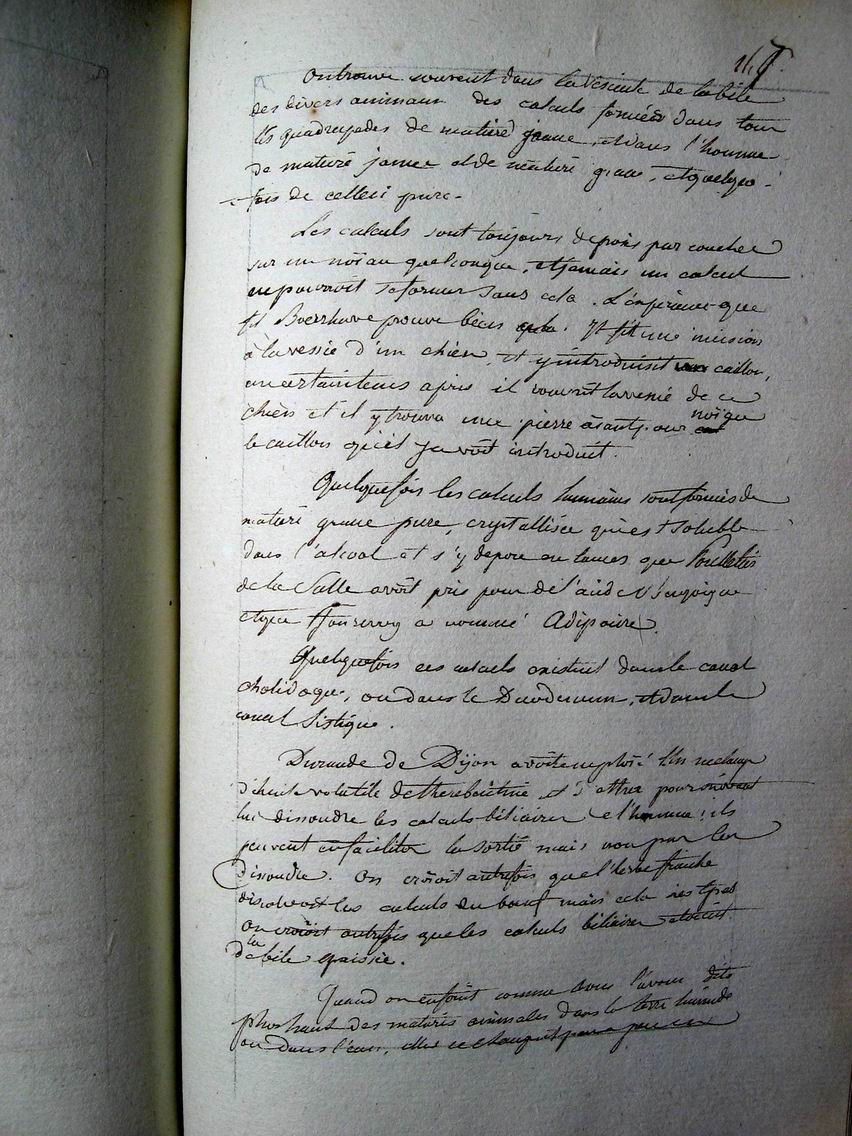 on trouve souvent dans la vésicule de la bile
des divers animaux des calculs formés dans tous
les quadrupedes de matiere jaune, et dans l'homme
de matiere jaune et de matiere grasse, et quelque-
fois de celleci pure.
Les calculs sont toujours deposés par couches
sur un noïau quelconque, et jamais un calcul
ne pourroit se former sans cela. L'expérience que
fit Boerrhave prouve bien cela. Il fit une incision
à la vessie d'un chien, et y introduisit un caillou,
un certain tems apres il rouvrit la vessie de ce
chien et il y trouva une pierre aïant pour noïau
le caillou qu'il y avoit introduit.
Quelquefois les calculs humains sont formés de
matiere grasse pure, crystallisée qui est soluble
dans l'alcool et s'y depose en lames que Poulletier
de la Salle avoit pris pour de l'acide
et que Fourcroy a nommé Adipocire.
Quelquefois ces calculs existent dans le canal
cholidoque, ou dans le Duodenum, et dans le
canal sistique.
Durande de Dijon avoit emploié un melange
d'huile volatile de therebentine et d'ether pour suivant
lui dissoudre les calculs biliaires de l'homme; ils
peuvent en faciliter la sortie mais non pas les
dissoudre. On croioit autrefois que l'herbe fraiche
dissolvoit les calculs du boeuf mais cela n'est pas
on croioit autrefois que les calculs biliaires etoient
de la bile epaissie.
Quand on enfouit comme nous l'avons dit
plus haut des matieres animales dans la terre humide
ou dans l'eau, elles se changent peu a peu en